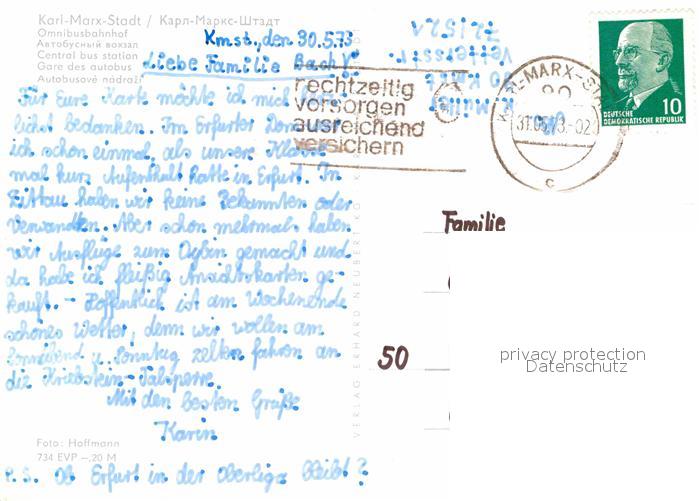 Karl-Marx-Stadt / Карл-Маркс-Штадт
Omnibusbahnhof
Автобусный вокзал
Central bus station
Gare des autobus
Autobusové nádraží
Kmst., den 30.5.73
Liebe Familie
Für Eure Karte möchte ich mich
lichst bedanken. Im Erfurter Dom
ich schon einmal, als unser
mal kurz Aufenthalt hatte in Erfurt. In
Zittau haben wir keine Bekannten oder
Verwandten. Aber schon mehrmals haben
wir Ausflüge zum Oybin gemacht und
da habe ich fleißig Ansichtskarten ge-
kauft. - Hoffentlich ist am Wochenende
schönes Wetter, denn wir wollen am
Sonnabend u. Sonntag zelten fahren an
die Kriebstein-Talsperre.
Mit den besten Grüße
Karin
Foto: Hoffmann
734 EVP -,20 M
P.S. Ob Erfurt in der Oberliga bleibt?
VERLAG ERHARD NEUBERT KG
rechtzeitig
vorsorgen
ausreichend
versichern
K. Müller
90 KMSt
KARL-MARX-STADT
90
31.05.73.-02
c
10
DEUTSCHE
DEMOKRATISCHE REPUBLIK
Familie
50
privacy protection
Datenschutz